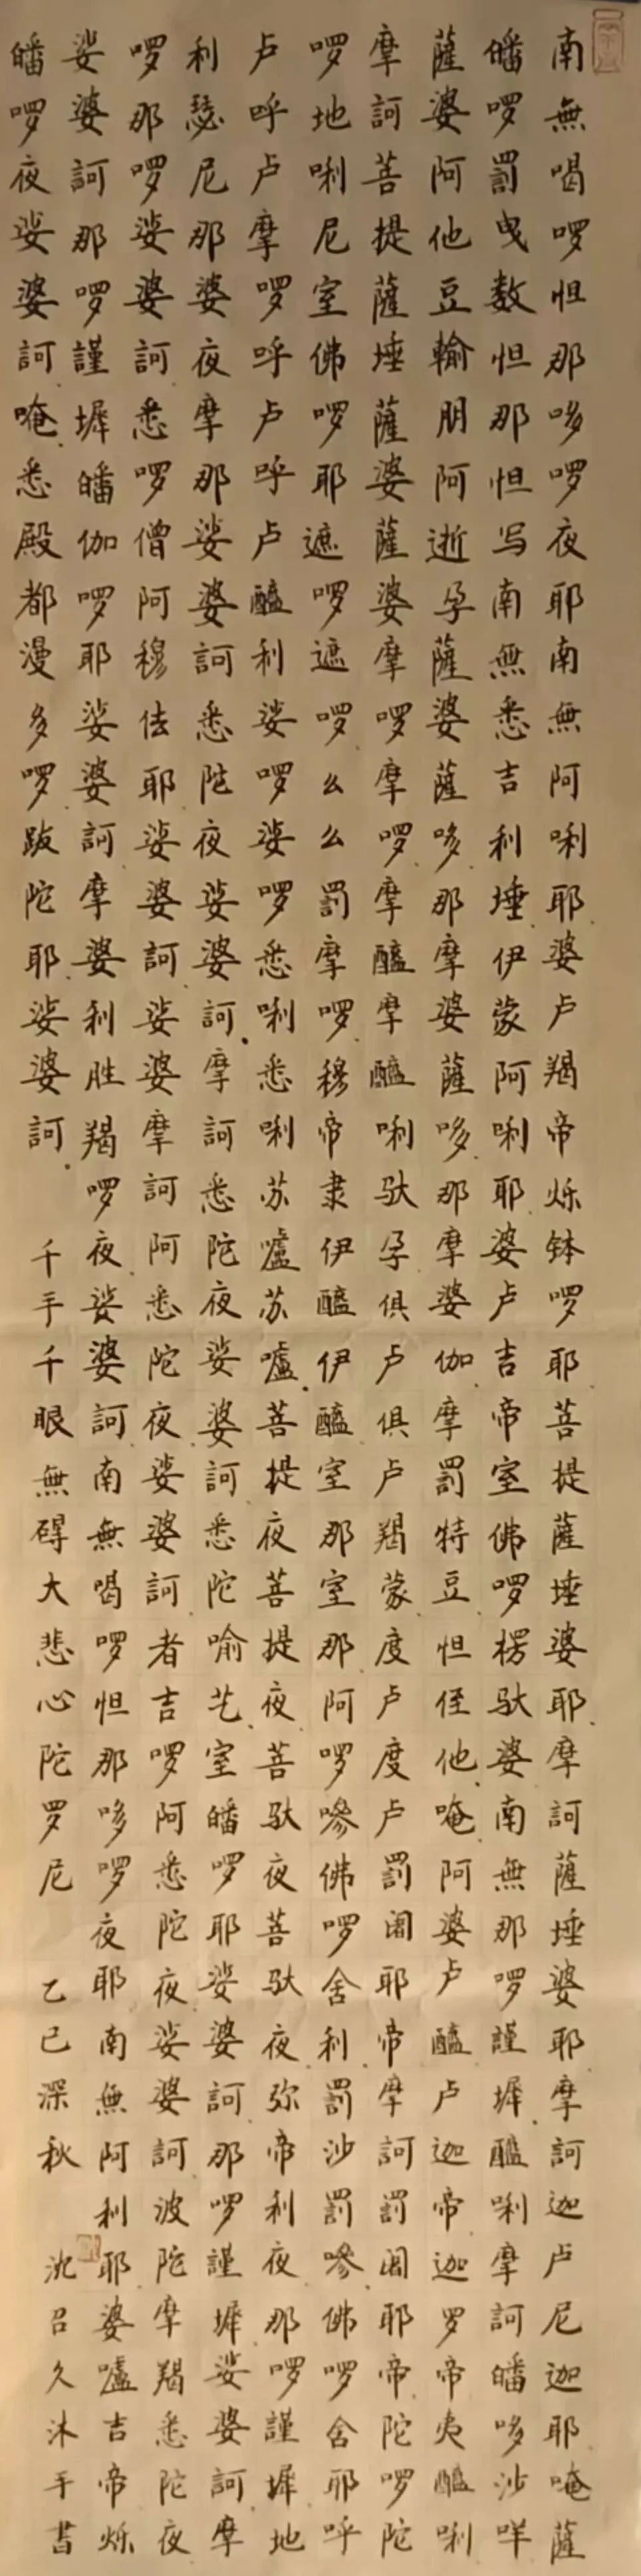 南無喝啰怛那哆啰夜耶南無阿唎耶婆卢羯帝烁钵啰耶菩提薩埵婆耶摩訶薩埵婆耶摩訶迦卢尼迦耶唵薩
皤啰罰曳数怛那怛写南無悉吉利埵伊蒙阿唎耶婆卢吉帝室佛啰楞馱婆南無那啰謹墀醯唎摩訶皤哆沙咩
薩婆阿他豆輸朋阿逝孕薩婆薩哆那摩婆薩哆那摩婆伽摩罰特豆怛侄他唵阿婆卢醯卢迦帝迦罗帝夷醯唎
摩訶菩提薩埵薩婆薩婆摩啰摩啰摩醯摩醯唎馱孕俱卢俱卢羯蒙度卢度卢罰闍耶帝摩訶罰闍耶帝陀啰陀
啰地唎尼室佛啰耶遮啰遮啰么么罰摩啰穆帝隶伊醯伊醯室那室那阿啰嘇佛啰舍利罰沙罰嘇佛啰舍耶呼
卢呼卢摩啰呼卢呼卢醯利娑啰娑啰悉唎悉唎苏嚧苏嚧菩提夜菩提夜菩馱夜菩馱夜弥帝利夜那啰謹墀地
利瑟尼那婆夜摩那娑婆訶悉陀夜娑婆訶摩訶悉陀夜娑婆訶悉陀喻艺室皤啰耶娑婆訶那啰謹墀娑婆訶摩
啰那啰娑婆訶悉啰僧阿穆佉耶娑婆訶娑婆摩訶阿悉陀夜娑婆訶者吉啰阿悉陀夜娑婆訶波陀摩羯悉陀夜
娑婆訶那啰謹墀皤伽啰耶娑婆訶摩婆利胜羯啰夜娑婆訶南無喝啰怛那哆啰夜耶南無阿利耶婆嚧吉帝烁
皤啰夜娑婆訶唵悉殿都漫多啰跋陀耶娑婆訶 千手千眼無碍大悲心陀罗尼 乙巳深秋 沈召久沐手書